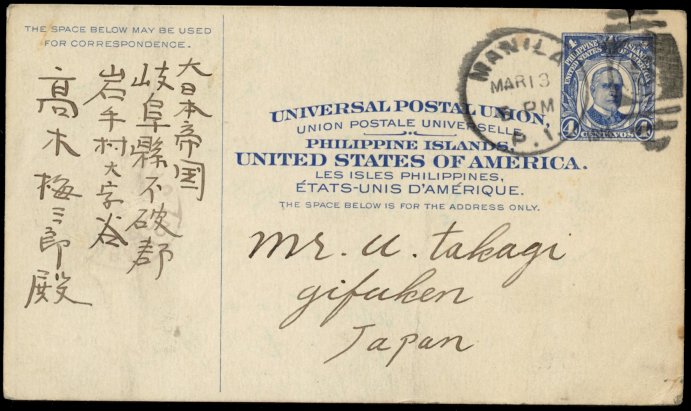 THE SPACE BELOW MAY BE USED
FOR CORRESPONDENCE.
大日本帝国
岐阜縣不破郡
岩手村大字谷
高木梅三郎殿
UNIVERSAL POSTAL UNION,
UNION POSTALE UNIVERSELLE.
PHILIPPINE ISLANDS,
UNITED STATES OF AMERICA.
LES ISLES PHILIPPINES,
ÉTATS-UNIS D'AMÉRIQUE.
THE SPACE BELOW IS FOR THE ADDRESS ONLY.
MANILA
MAR 13
PM
P. I.
PHILIPPINE ISLANDS
UNITED STATES OF AMERICA
4 CENTAVOS 4
Mr. U. Takagi
Gifuken
Japan